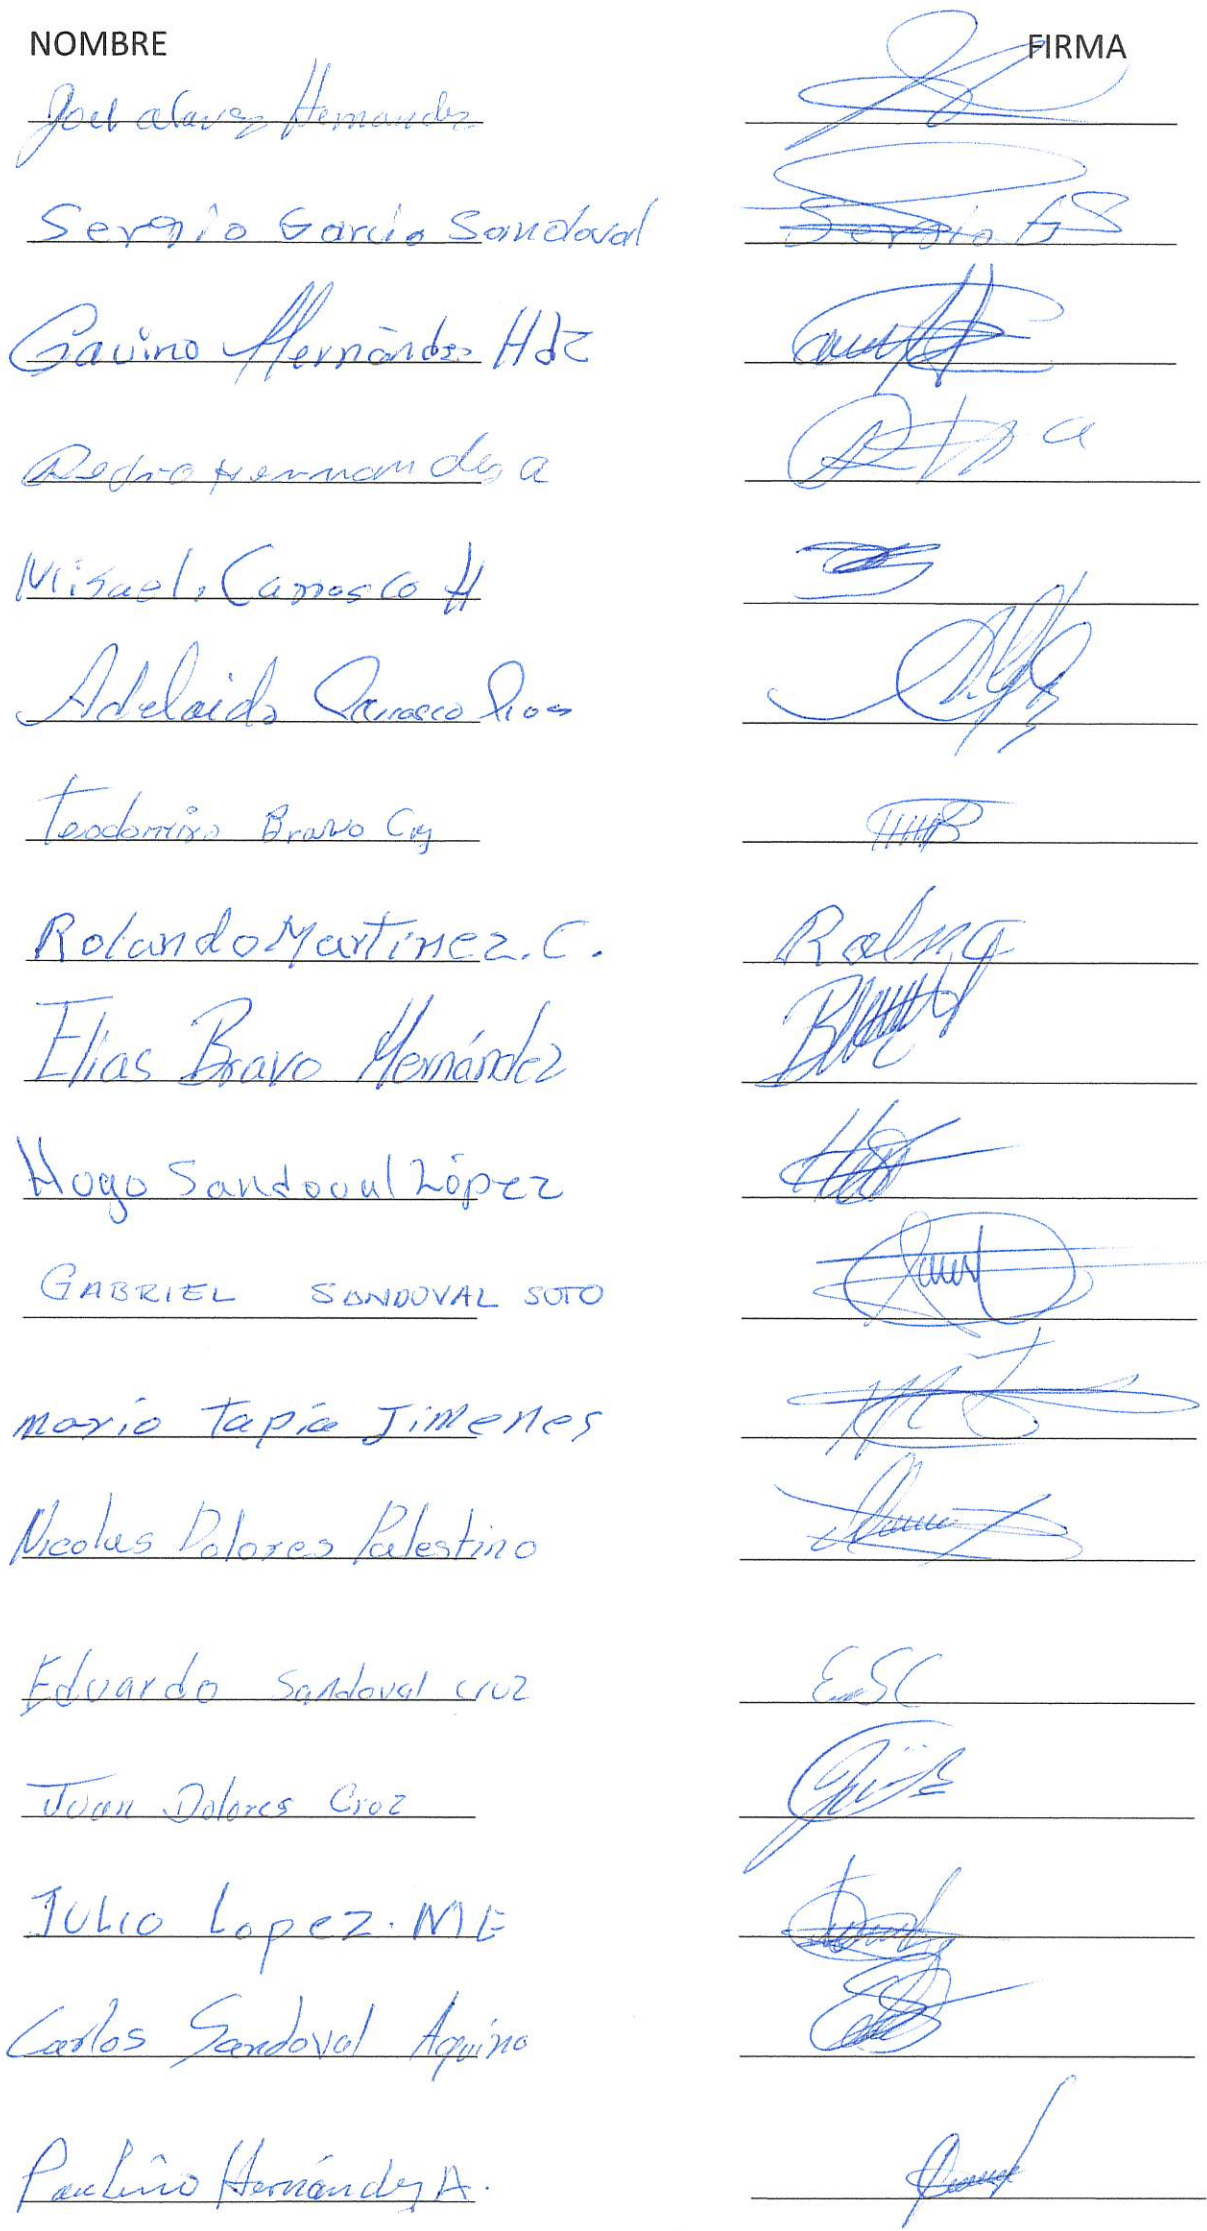 NOMBRE FIRMA
Joel alavez Hernandez
Sergio Garcia Sandoval Sergio GS
Gavino Hernández Hdz
Pedro Hernandez a
Misael. Carrasco H
Adelaida Carrasco Rios
Teodomiro Bravo Cruz
Rolando Martinez. C.
Elias Bravo Hernández
Hugo Sandoval López
GABRIEL SANDOVAL SOTO
mario Tapia Jimenes
Nicolas Dolores Palestino
Eduardo Sandoval Cruz ESC
Juan Dolores Cruz
JULIO Lopez. ME
Carlos Sandoval Aquino
Paulino Hernández A.